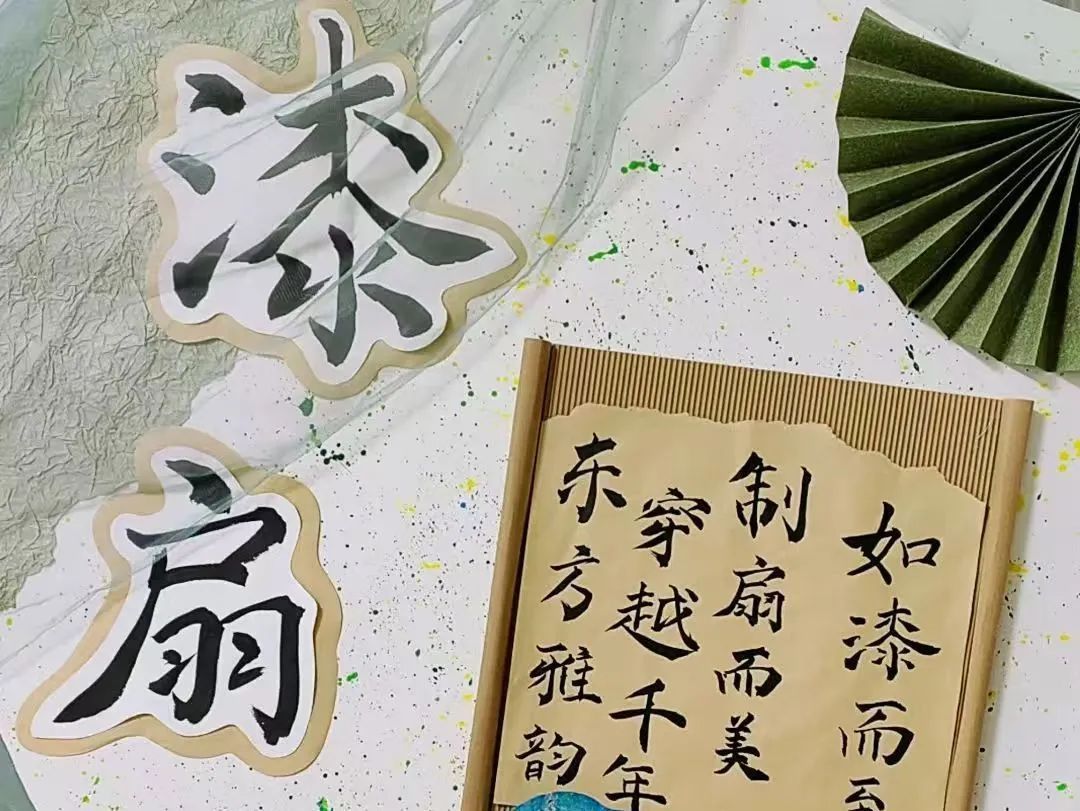 漆
扇
如漆而至
制扇而美
穿越千年
东方雅韵